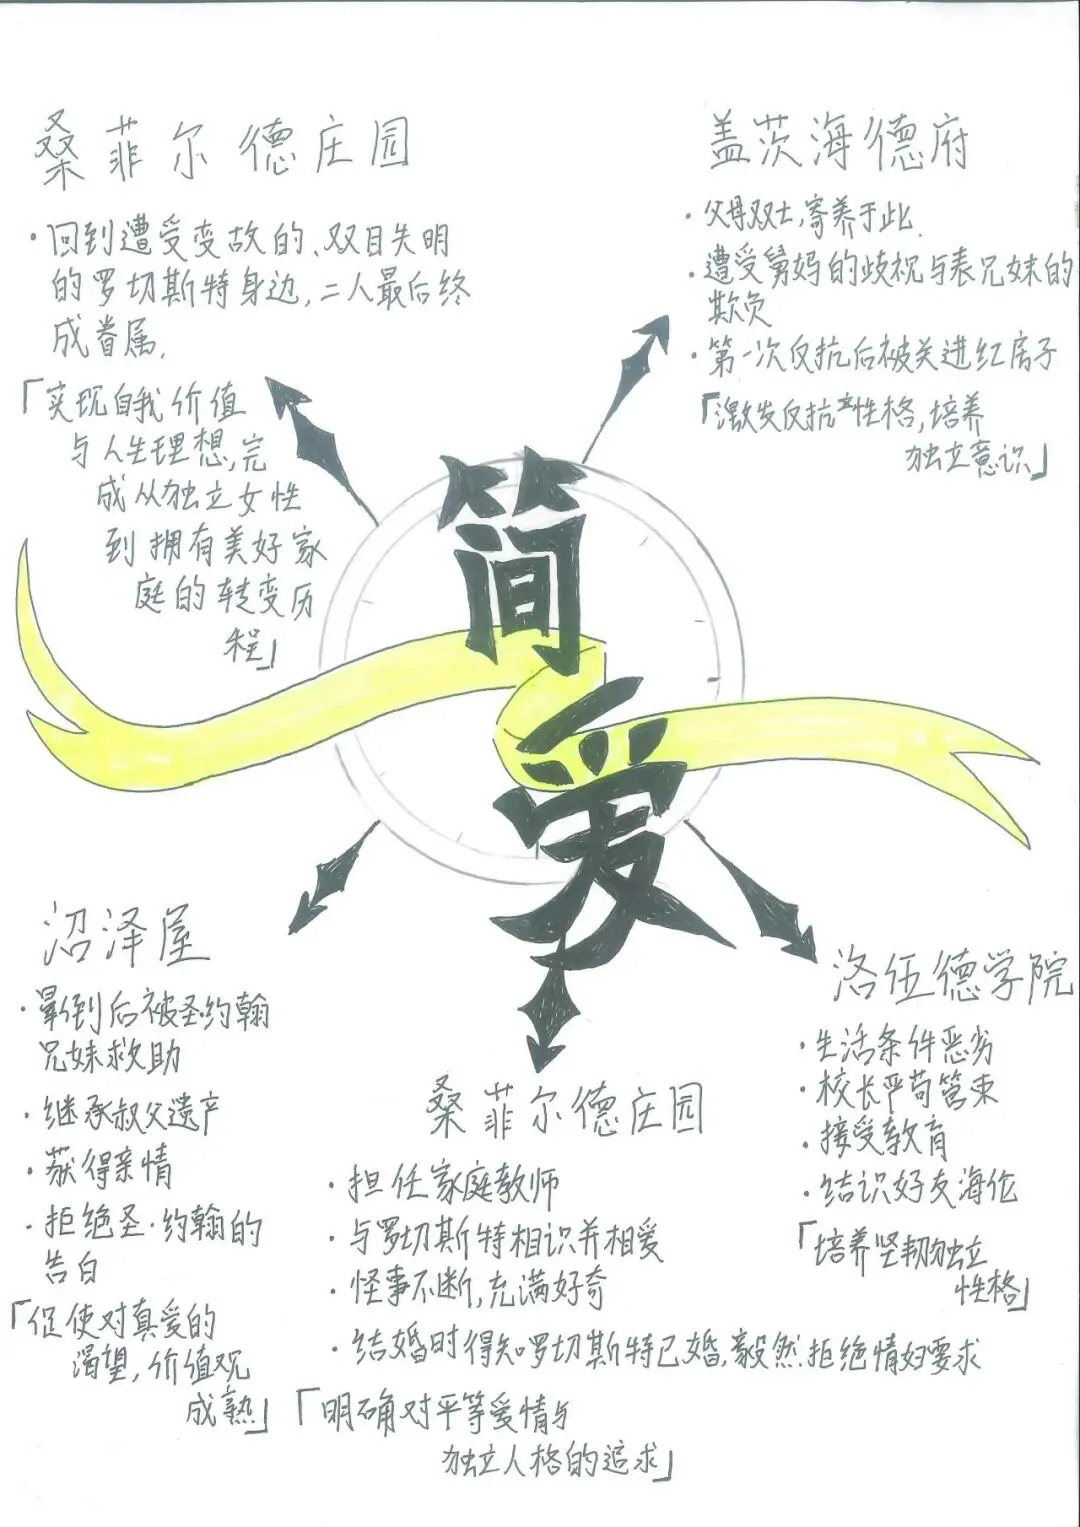 桑菲尔德庄园
·回到遭受变故的、双目失明
的罗切斯特身边,二人最后终
成眷属.
「实现自我价值
与人生理想,完
成从独立女性
到拥有美好家
庭的转变历
程」
盖茨海德府
·父母双亡,寄养于此.
·遭受舅妈的歧视与表兄妹的
欺负
·第一次反抗后被关进红房子
「激发反抗性格,培养
独立意识」
简
爱
沼泽屋
·晕倒后被圣约翰
兄妹救助
·继承叔父遗产
·获得亲情
·拒绝圣·约翰的
告白
「促使对真爱的
渴望,价值观
成熟」
桑菲尔德庄园
·担任家庭教师
·与罗切斯特相识并相爱
·怪事不断,充满好奇
·结婚时得知罗切斯特已婚,毅然拒绝情妇要求
「明确对平等爱情与
独立人格的追求」
洛伍德学院
·生活条件恶劣
·校长严苛管束
·接受教育
·结识好友海伦
「培养坚韧独立
性格」